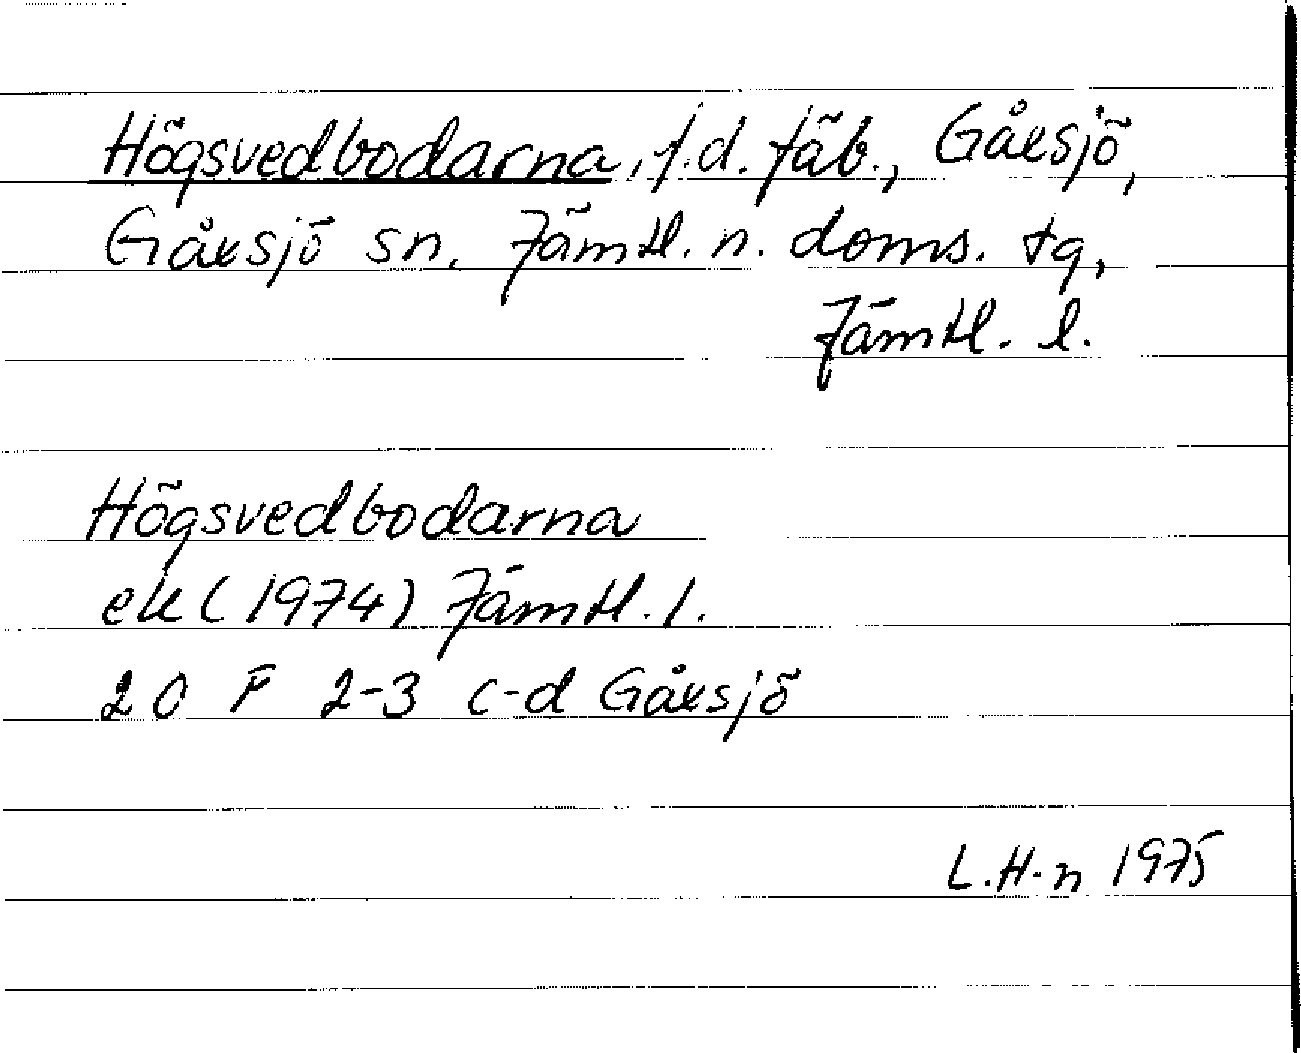 Högsvedbodarna, f.d. fäb., Gåxsjö,
Gåxsjö sn. Jämtl. n. doms. tg,
Jämtl. l.
Högsvedbodarna
ek (1974) Jämtl. l.
20 F 2-3 c-d Gåxsjö
L.H-n 1975